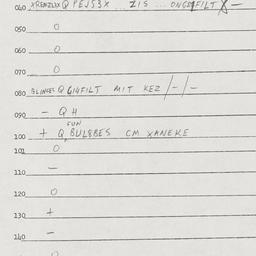 040 XREMZLXX Q PEJS3X ZIS ... ONGEFILT X -
050 O
060 O
070 O
080 Q GIGFILT MIT KEZ /-/-
090 - Q H
FUN
100 + Q, BULBBES CM XANEKE
101 O
110 -
120 O
130 +
140 -